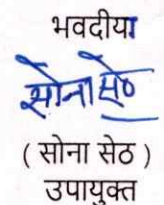 भवदीया
सोना सेठ
( सोना सेठ )
उपायुक्त